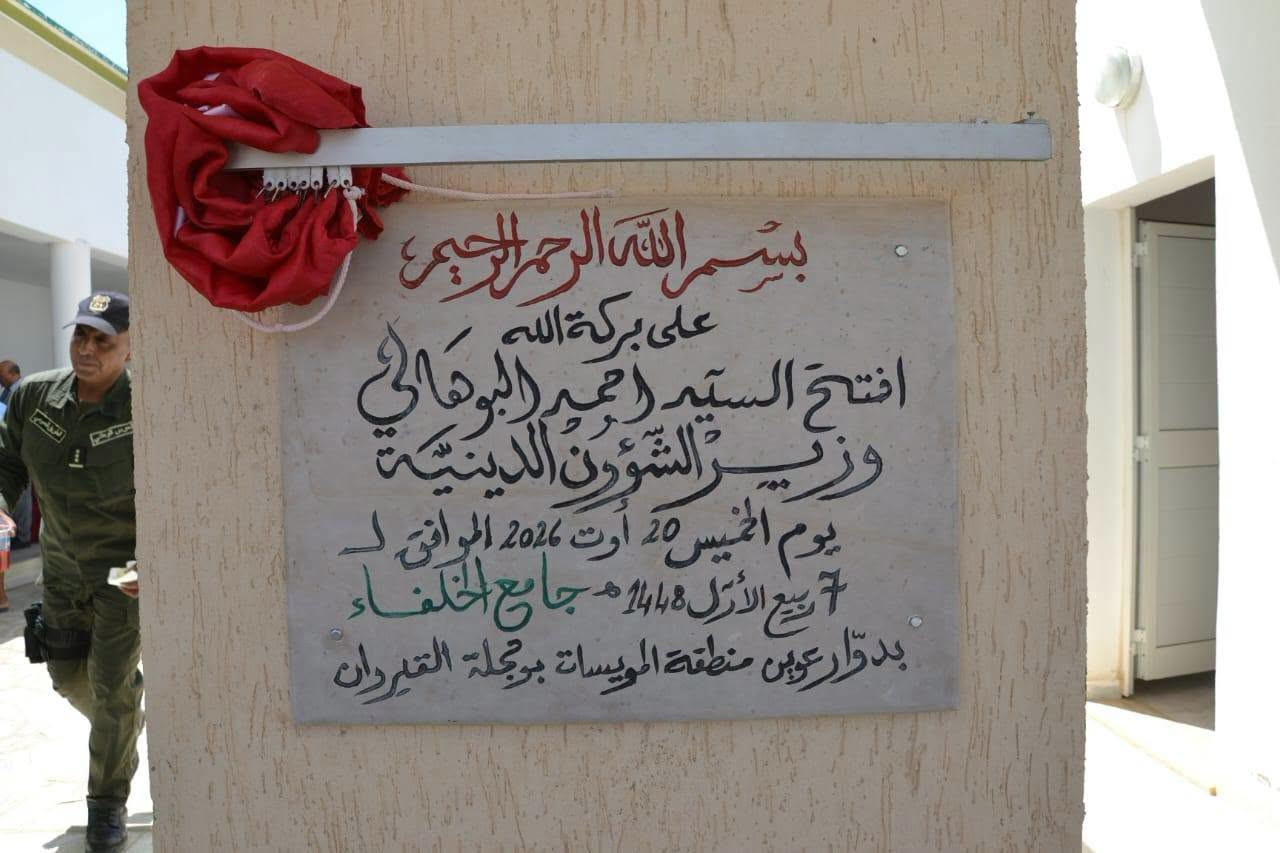 بسم الله الرحمن الرحيم
على بركة الله
افتتح السيد احمد البوهالي
وزير الشّؤون الدينيّة
يوم الخميس 20 أوت 2026 الموافق لـ
7 ربيع الأوّل 1448 هـ جامع الخلفاء
بدوّار عوين منطقة المويسات بوحجلة القيروان